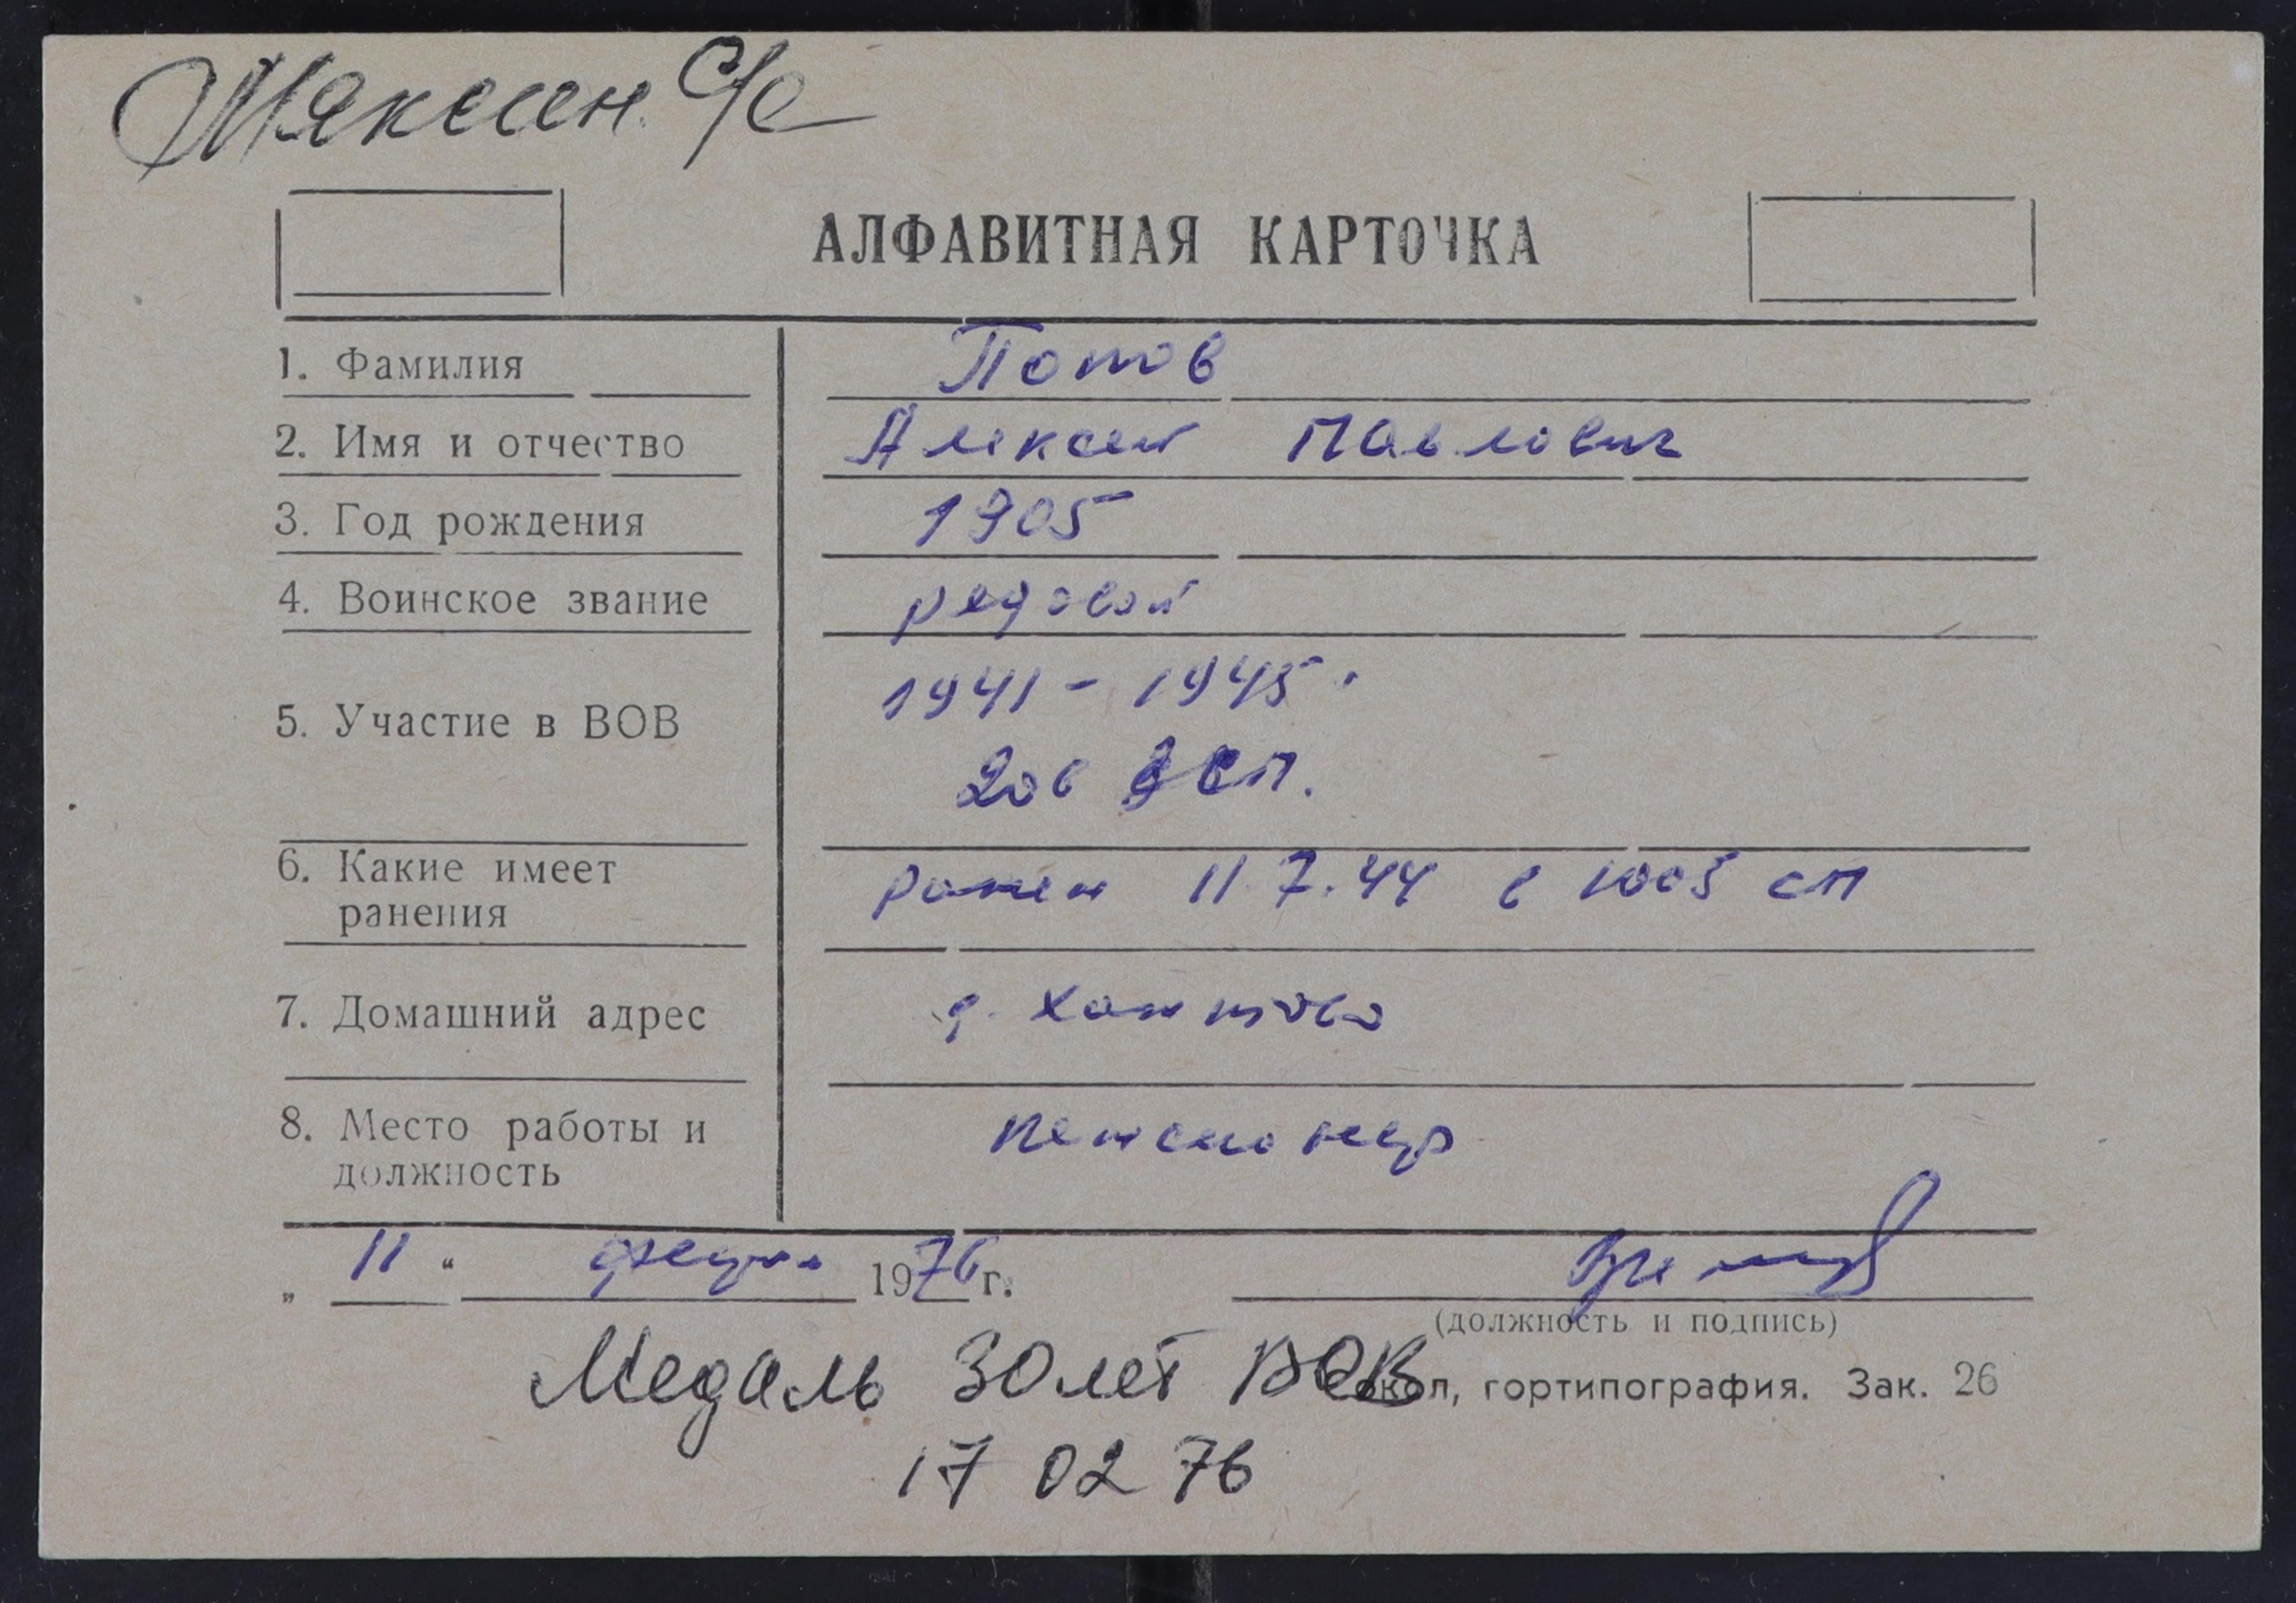 Мяксин. с/с
АЛФАВИТНАЯ КАРТОЧКА
1. Фамилия Попов
2. Имя и отчество Алексей Павлович
3. Год рождения 1905
4. Воинское звание рядовой
1941-1945.
5. Участие в ВОВ
206 зсп.
6. Какие имеет ранен 11.7.44 в 1005 сп
ранения
7. Домашний адрес д.
8. Место работы и пенсионер
должность
„ 11 “ февра 1976 г.
(должность и подпись)
Медаль 30 лет ВОВ
Сокол, гортипография. Зак. 26
17 02 76